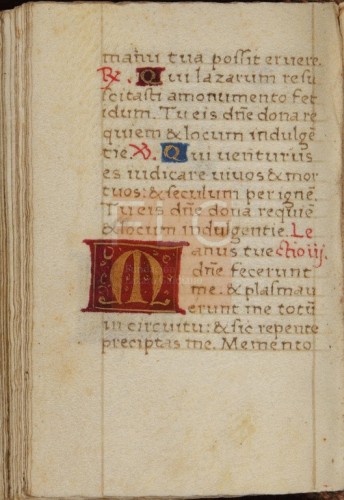 manu tua possit eruere.
℟. Qui lazarum resu
scitasti a monumento fet
idum. Tu eis dñe dona re
quiem & locum indulgē
tie. ℣. Qui uenturus
es iudicare uiuos & mor
tuos: & seculum per ignē.
Tu eis dñe dona requiē
& locum indulgentie. Le
Manus tue ctio iij.
dñe fecerunt
me. & plasmau
erunt me totū
in circuitu: & sic repente
precipitas me. Memento